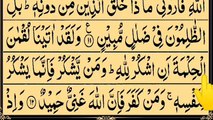 اللّٰهِ فَاَرُوْنِیْ مَاذَا خَلَقَ الَّذِیْنَ مِنْ دُوْنِهٖ ؕ بَلِ
الظّٰلِمُوْنَ فِیْ ضَلٰلٍ مُّبِیْنٍ ﴿۱۱﴾ وَلَقَدْ اٰتَیْنَا لُقْمٰنَ
الْحِكْمَةَ اَنِ اشْكُرْ لِلّٰهِ ؕ وَمَنْ یَّشْكُرْ فَاِنَّمَا یَشْكُرُ
لِنَفْسِهٖ ۚ وَمَنْ كَفَرَ فَاِنَّ اللّٰهَ غَنِیٌّ حَمِیْدٌ ﴿۱۲﴾ وَاِذْ